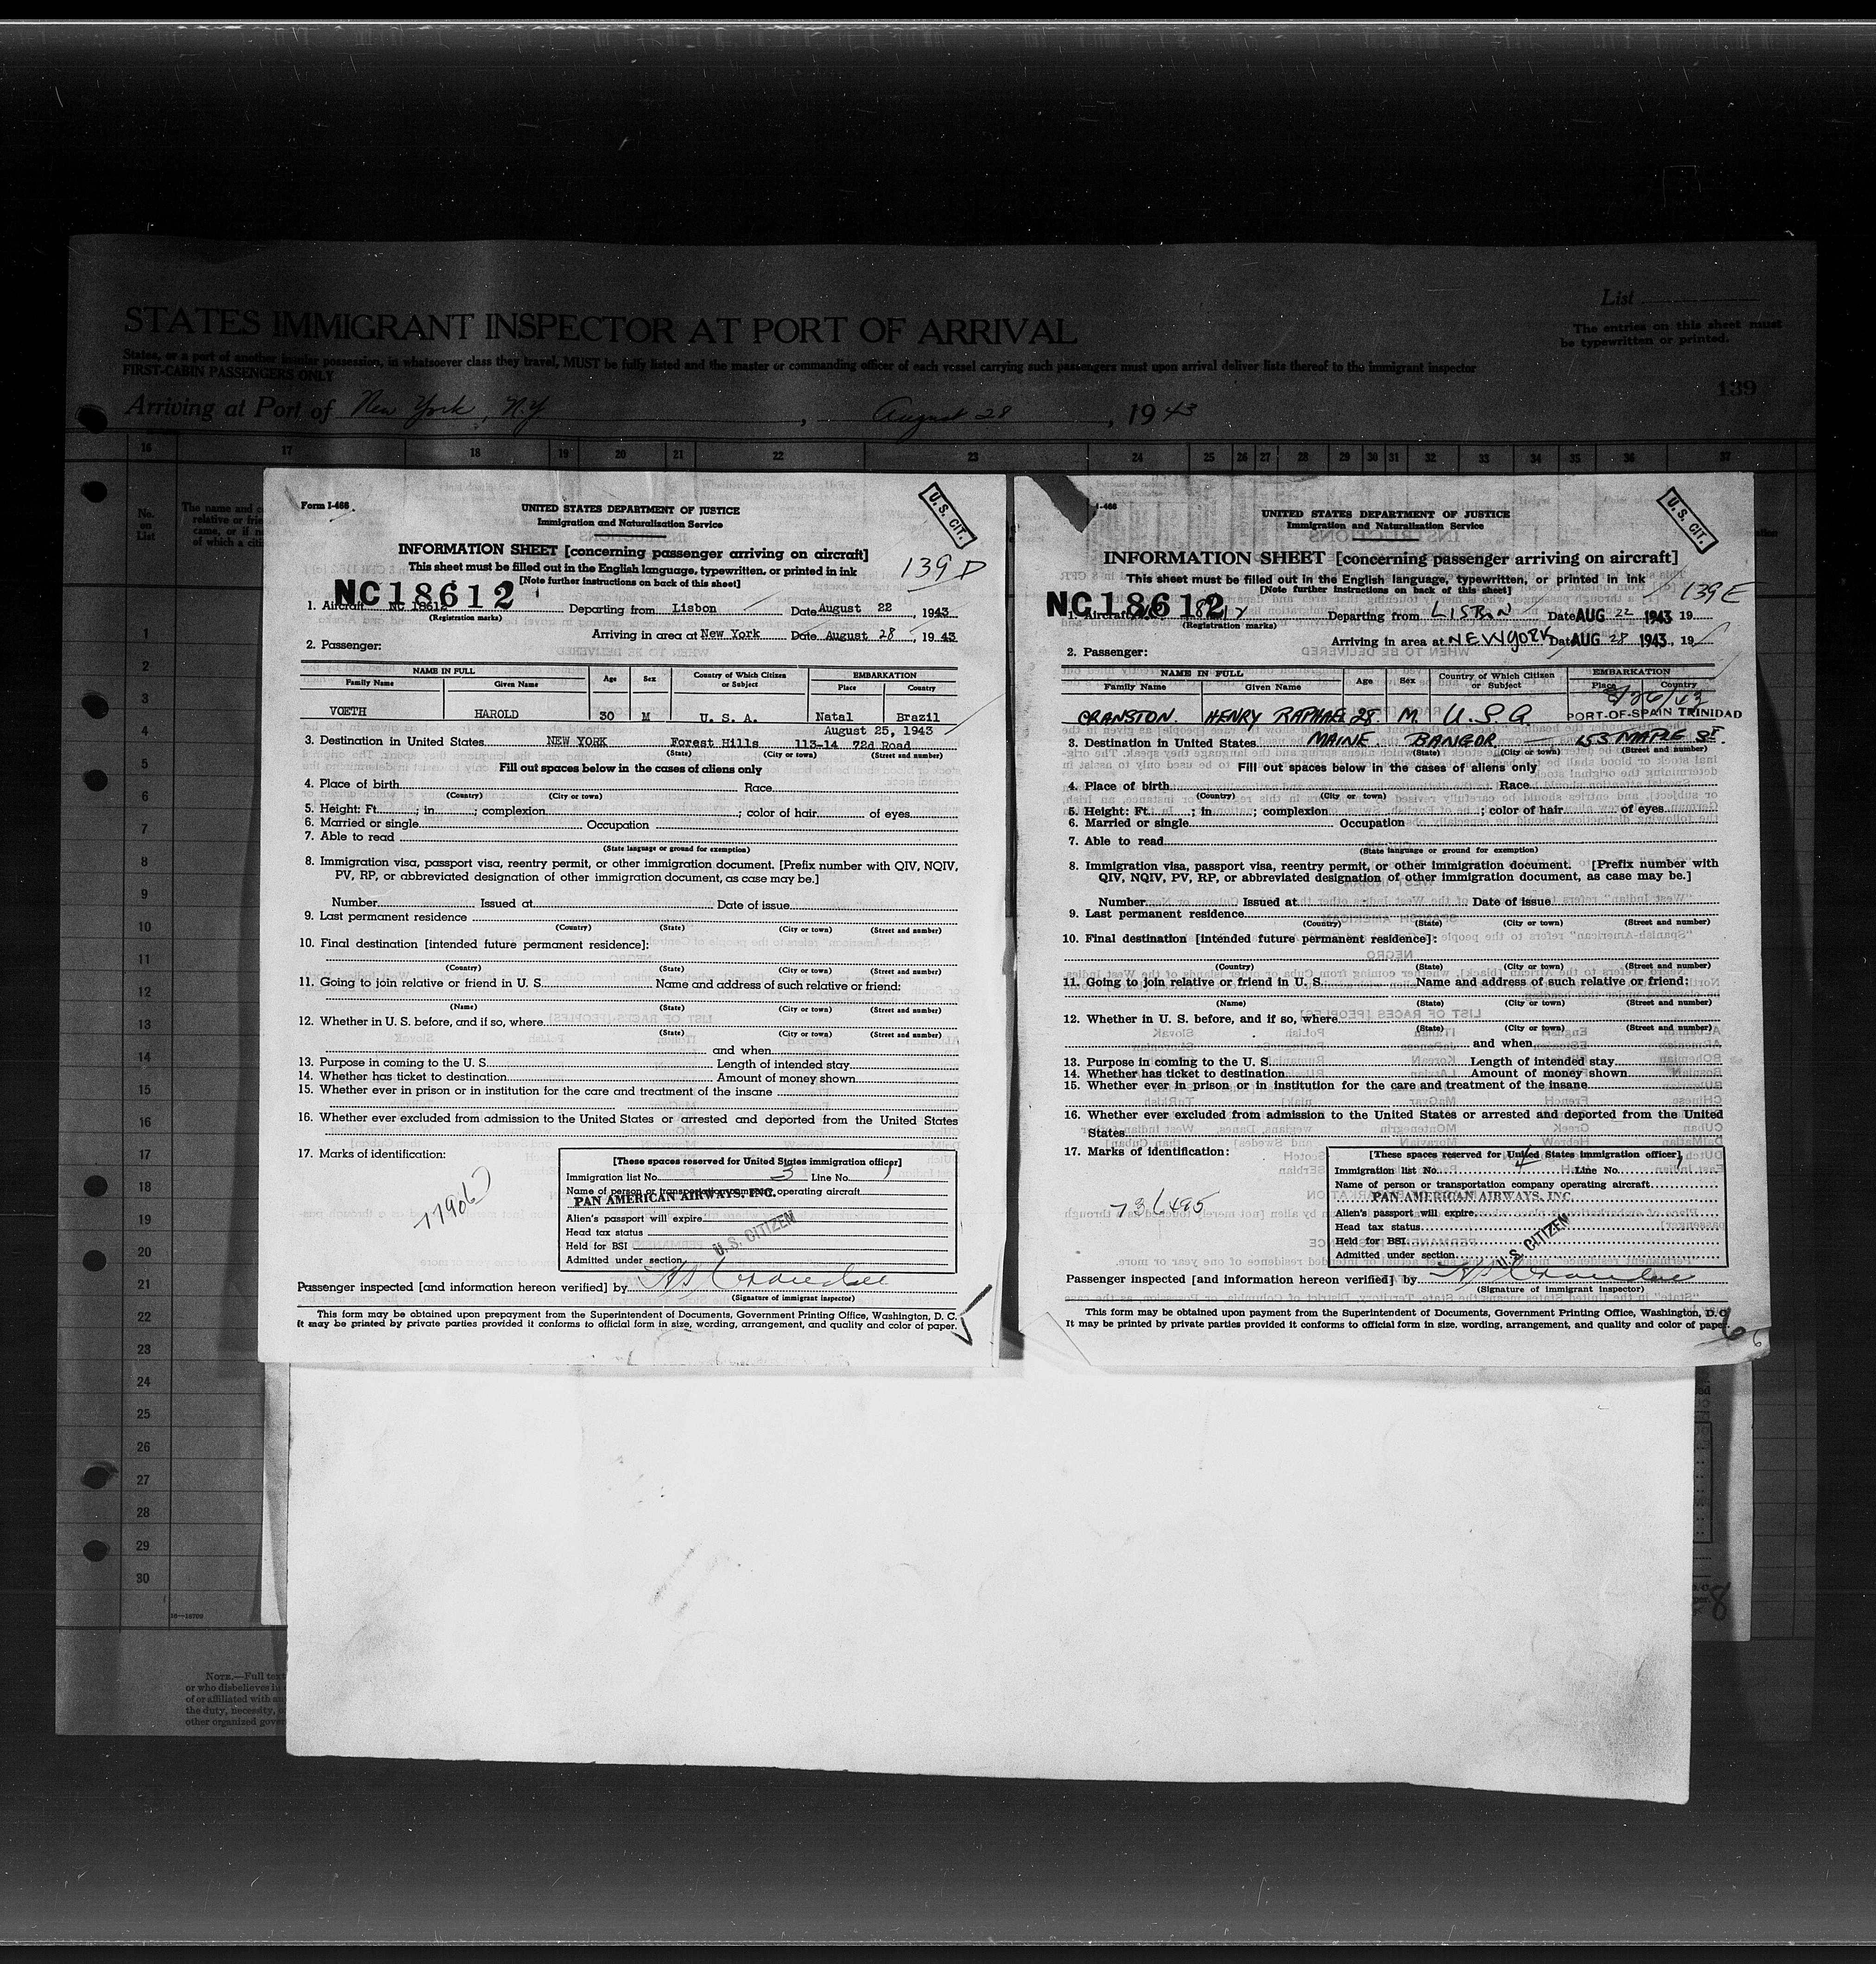 List
STATES IMMIGRANT INSPECTOR AT PORT OF ARRIVAL
The entries on this sheet must
be typewritten or printed.
States, or a port of another insular possession, in whatsoever class they travel, MUST be fully listed and the master or commanding officer of each vessel carrying such passengers must upon arrival deliver lists thereof to the immigrant inspector
FIRST-CABIN PASSENGERS ONLY
139
Arriving at Port of New York, N.Y. , August 28 , 1943
16 17 18 19 20 21 22 23 24 25 26 27 28 29 30 31 32 33 34 35 36 37
No.
on
List
1
2
3
4
5
6
7
8
9
10
11
12
13
14
15
16
17
18
19
20
21
22
23
24
25
26
27
28
29
30
Form I-466
U. S. CIT.
UNITED STATES DEPARTMENT OF JUSTICE
Immigration and Naturalization Service
INFORMATION SHEET [concerning passenger arriving on aircraft]
This sheet must be filled out in the English language, typewritten, or printed in ink
[Note further instructions on back of this sheet]
139 D
NC18612
1. Aircraft NC 18612 Departing from Lisbon Date August 22 , 1943
(Registration marks)
Arriving in area at New York Date August 28 , 19 43
2. Passenger:
NAME IN FULL Age Sex Country of Which Citizen or Subject EMBARKATION
Family Name Given Name Place Country
VOETH HAROLD 30 M U. S. A. Natal Brazil
August 25, 1943
3. Destination in United States NEW YORK Forest Hills 113-14 72d Road
(State) (City or town) (Street and number)
Fill out spaces below in the cases of aliens only
4. Place of birth Race
(Country) (City or town)
5. Height: Ft. ; in. ; complexion ; color of hair of eyes
6. Married or single Occupation
7. Able to read
(State language or ground for exemption)
8. Immigration visa, passport visa, reentry permit, or other immigration document. [Prefix number with QIV, NQIV,
PV, RP, or abbreviated designation of other immigration document, as case may be.]
Number Issued at Date of issue
9. Last permanent residence
(Country) (State) (City or town) (Street and number)
10. Final destination [intended future permanent residence]:
(Country) (State) (City or town) (Street and number)
11. Going to join relative or friend in U. S. Name and address of such relative or friend:
(Name) (State) (City or town) (Street and number)
12. Whether in U. S. before, and if so, where
(State) (City or town) (Street and number)
and when
13. Purpose in coming to the U. S. Length of intended stay
14. Whether has ticket to destination Amount of money shown
15. Whether ever in prison or in institution for the care and treatment of the insane
16. Whether ever excluded from admission to the United States or arrested and deported from the United States
17. Marks of identification:
[These spaces reserved for United States immigration officer]
Immigration list No. 3 Line No. 1
Name of person or transportation company operating aircraft
PAN AMERICAN AIRWAYS, INC.
Alien's passport will expire
Head tax status
Held for BSI
Admitted under section
U.S. CITIZEN
Passenger inspected [and information hereon verified] by
(Signature of immigrant inspector)
This form may be obtained upon prepayment from the Superintendent of Documents, Government Printing Office, Washington, D. C.
It may be printed by private parties provided it conforms to official form in size, wording, arrangement, and quality and color of paper.
I-466
U. S. CIT.
UNITED STATES DEPARTMENT OF JUSTICE
Immigration and Naturalization Service
INFORMATION SHEET [concerning passenger arriving on aircraft]
This sheet must be filled out in the English language, typewritten, or printed in ink
[Note further instructions on back of this sheet]
139 E
NC18612
1. Aircraft Departing from LISBON Date AUG 22 1943 19
(Registration marks)
Arriving in area at NEW YORK Date AUG 28 1943, 19
2. Passenger:
NAME IN FULL Age Sex Country of Which Citizen or Subject EMBARKATION
Family Name Given Name Place Country
8/26/43
CRANSTON. HENRY RAPHAEL 28. M. U.S.A. PORT-OF-SPAIN TRINIDAD
3. Destination in United States MAINE. BANGOR 153 MAPLE ST.
(State) (City or town) (Street and number)
Fill out spaces below in the cases of aliens only
4. Place of birth Race
(Country) (City or town)
5. Height: Ft. ; in. ; complexion ; color of hair of eyes
6. Married or single Occupation
7. Able to read
(State language or ground for exemption)
8. Immigration visa, passport visa, reentry permit, or other immigration document. [Prefix number with
QIV, NQIV, PV, RP, or abbreviated designation of other immigration document, as case may be.]
Number Issued at Date of issue
9. Last permanent residence
(Country) (State) (City or town) (Street and number)
10. Final destination [intended future permanent residence]:
(Country) (State) (City or town) (Street and number)
11. Going to join relative or friend in U. S. Name and address of such relative or friend:
(Name) (State) (City or town) (Street and number)
12. Whether in U. S. before, and if so, where
(State) (City or town) (Street and number)
and when
13. Purpose in coming to the U. S. Length of intended stay
14. Whether has ticket to destination Amount of money shown
15. Whether ever in prison or in institution for the care and treatment of the insane
16. Whether ever excluded from admission to the United States or arrested and deported from the United
States
17. Marks of identification:
736495
[These spaces reserved for United States immigration officer]
Immigration list No. 4 Line No. 1
Name of person or transportation company operating aircraft
PAN AMERICAN AIRWAYS, INC.
Alien's passport will expire
Head tax status
Held for BSI
Admitted under section
U.S. CITIZEN
Passenger inspected [and information hereon verified] by
(Signature of immigrant inspector)
This form may be obtained upon payment from the Superintendent of Documents, Government Printing Office, Washington, D. C.
It may be printed by private parties provided it conforms to official form in size, wording, arrangement, and quality and color of paper.
6
6
8
16—18709
NOTE.—Full text
or who disbelieves in
of or affiliated with
the duty, necessity,
other organized